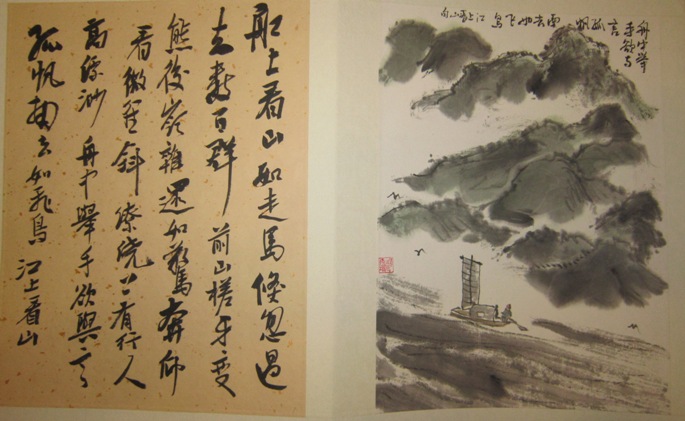 舡上看山如走馬倏忽過
去數百群 前山槎牙變
態後嶺雜遝如驚奔仰
看微徑斜繚繞上有行人
高縹渺 舟中舉手欲與言
孤帆南去如飛鳥 江上看山
舟中舉
手欲與
言孤帆南去如飛鳥 江上看山句